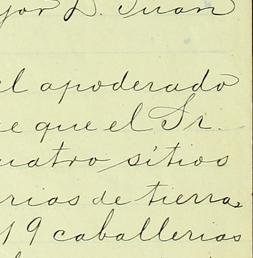 yor D. Juan
el apoderado
e que el Sr.
uatro sitios
rias de tierra,
19 caballerias